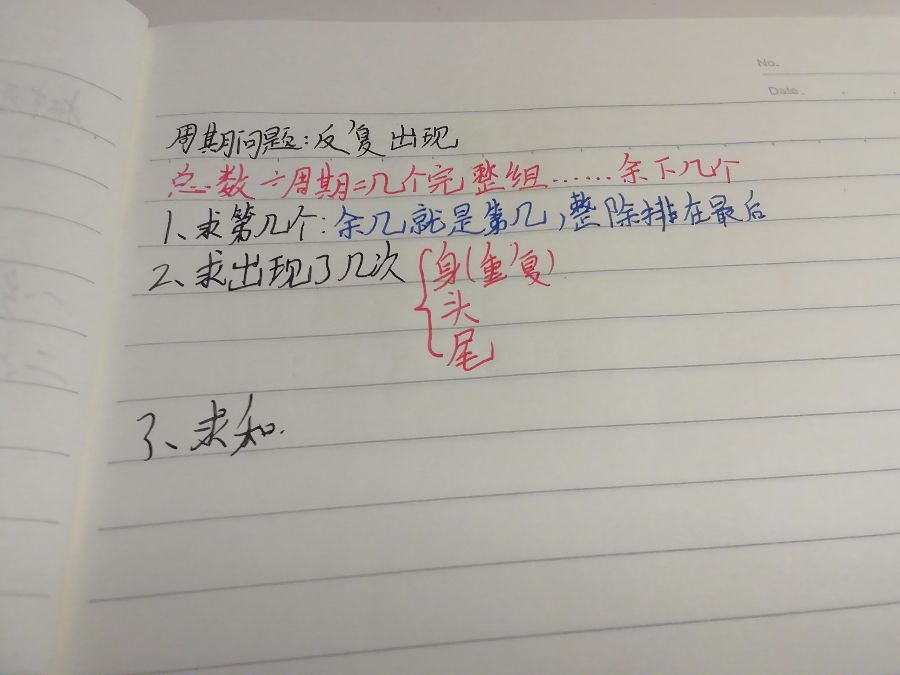 No.
Date.
周期问题:反复出现
总数÷周期=几个完整组……余下几个
1、求第几个:余几就是第几,整除排在最后
2、求出现了几次{身(重复)
头
尾
3、求和.